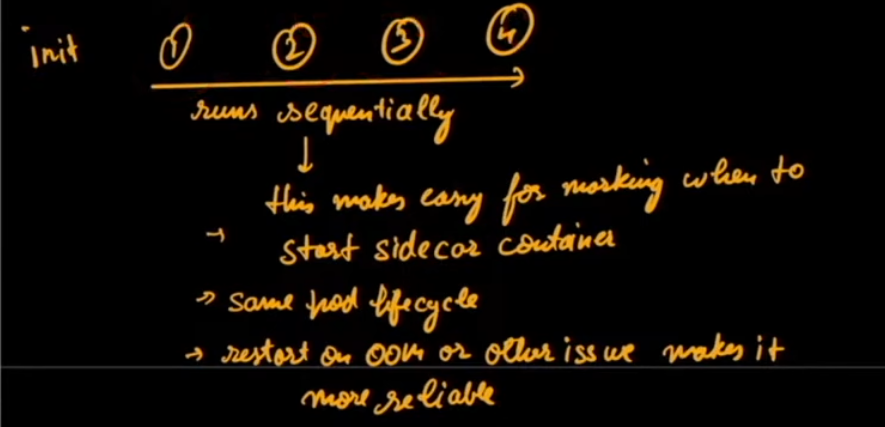 init ① ② ③ ④
runs sequentially
↓
this makes easy for marking when to
→ start sidecar container
→ same pod lifecycle
→ restart on OOM or other issue makes it
more reliable